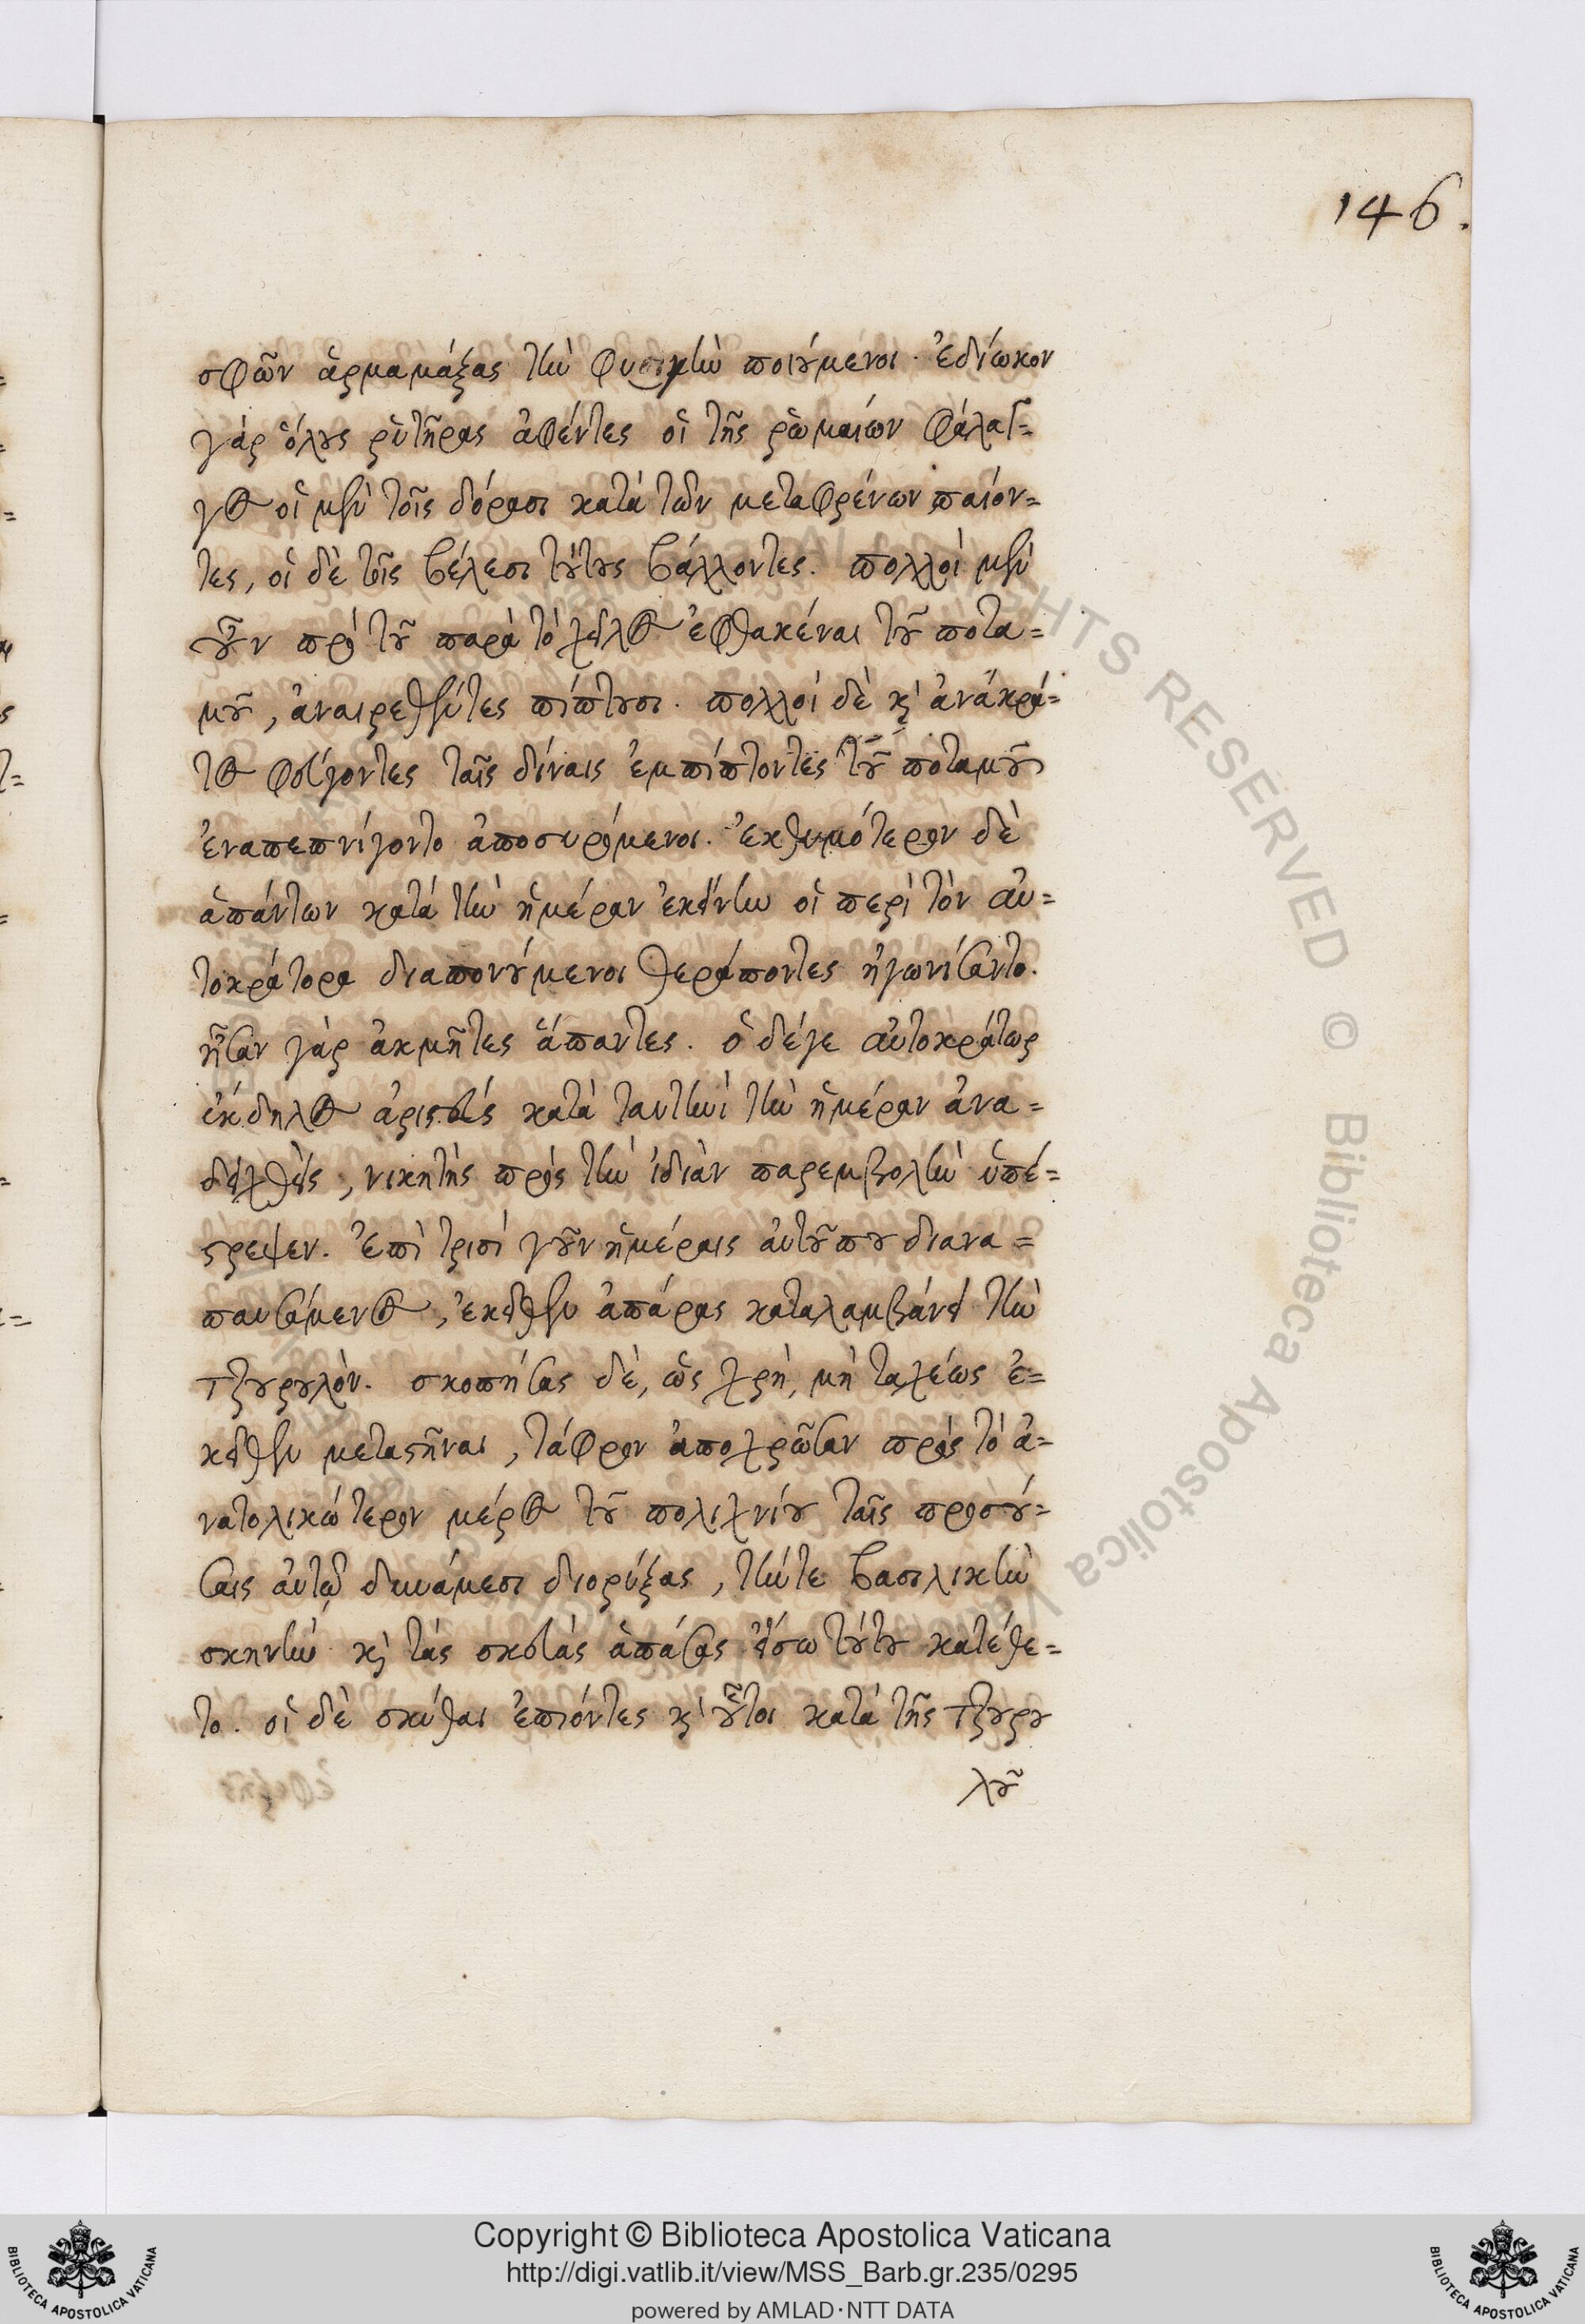 146.
σφῶν ἁρμαμάξας τὴν φυγὴν ποιούμενοι. ἐδίωκον
γάρ ὅλους ῥυτῆρας ἀφέντες οἱ τῆς ῥωμαίων φάλαγ=
γος οἱ μὲν τοῖς δόρασι κατά τῶν μεταφρένων παίον=
τες, οἱ δὲ τοῖς βέλεσι τούτους βάλλοντες. πολλοὶ μὲν
οὖν πρό τοῦ παρὰ τὸ χεῖλος ἐφθακέναι τοῦ ποτα=
μοῦ, ἀναιρεθέντες πίπτουσι. πολλοί δὲ καὶ ἀνάκρά=
τος φεύγοντες ταῖς δίναις ἐμπίπτοντες τοῦ ποταμοῦ
ἐναπεπνίγοντο ἀποσυρόμενοι. ἐκθυμότερον δὲ
ἁπάντων κατά τὴν ἡμέραν ἐκείνην οἱ περὶ τὸν αὐ=
τοκράτορα διαπονούμενοι θεράποντες ἠγωνίσαντο.
ἦσαν γὰρ ἀκμῆτες ἅπαντες. ὁ δέγε αὐτοκράτωρ
ἐκδηλος ἀριστεύς κατὰ ταυτηνὶ τὴν ἡμέραν ἀνα=
δειχθεὶς, νικητὴς πρὸς τὴν ἰδιὰν παρεμβολὴν ὑπέ=
στρεψεν. Ἐπὶ τρισί γοῦν ἡμέραις αὐτοῦ που διανα=
παυσάμενος, ἐκεῖθεν ἀπάρας καταλαμβάνει τὴν
τζουρουλὸν. σκοπήσας δὲ, ὡς χρὴ, μὴ ταχέως ἐ=
κεῖθεν μεταστῆναι, τάφρον ἀποχρῶσαν πρὸς τὸ ἀ=
νατολικώτερον μέρος τοῦ πολιχνίου ταῖς προσού=
σαις αὐτῷ δυνάμεσι διορύξας, τήντε βασιλικὴν
σκηνὴν καὶ τὰς σκευὰς ἁπάσας εἴσω τούτου κατέθε=
το. οἱ δὲ σκύθαι ἐπιόντες καὶ οὗτοι κατά τῆς τζουρου
λοῦ
Copyright © Biblioteca Apostolica Vaticana
http://digi.vatlib.it/view/MSS_Barb.gr.235/0295
powered by AMLAD·NTT DATA